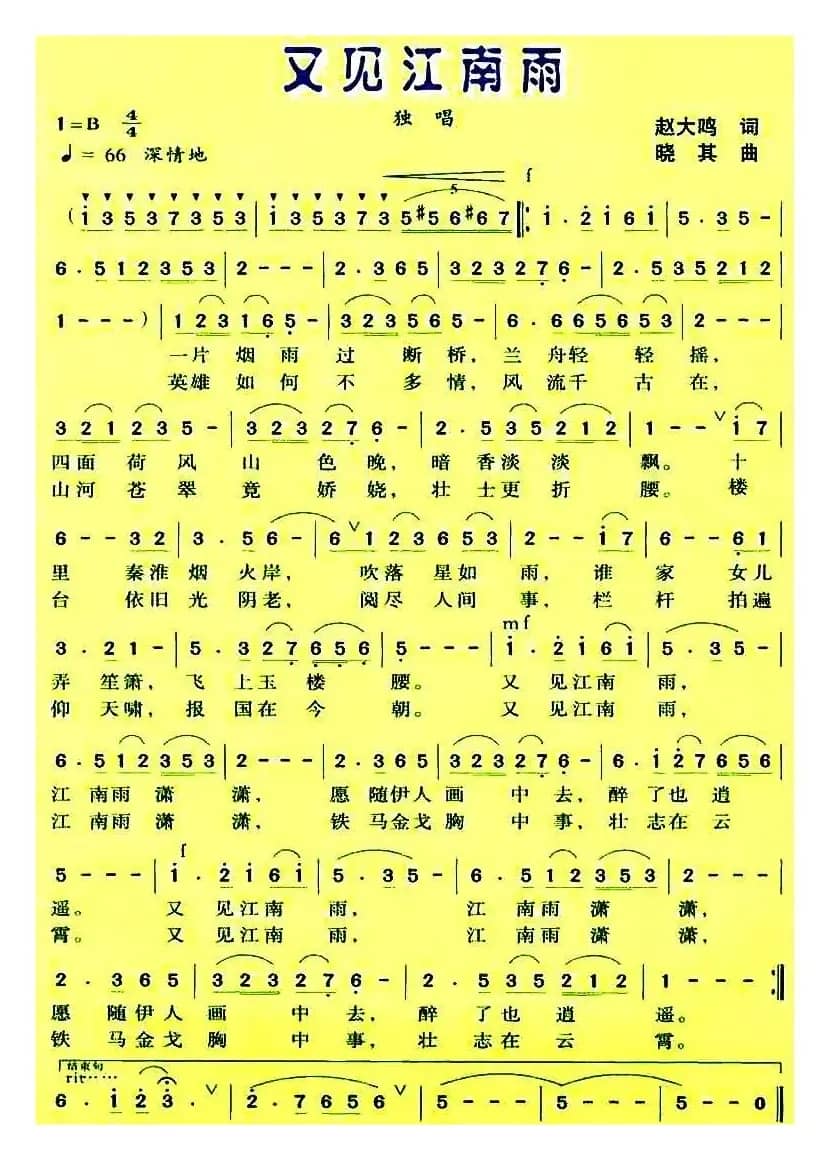 又见江南雨
1=B 4/4
独 唱
赵大鸣 词
♩= 66 深情地
晓 其 曲
5 f
( i 3 5 3 7 3 5 3 | i 3 5 3 7 3 5 #5 6 #6 7 ‖: i · 2 i 6 i | 5 · 3 5 - |
6 · 5 1 2 3 5 3 | 2 - - - | 2 · 3 6 5 | 3 2 3 2 7 6 - | 2 · 5 3 5 2 1 2 |
1 - - - ) | 1 2 3 1 6 5 - | 3 2 3 5 6 5 - | 6 · 6 6 5 6 5 3 | 2 - - - |
一片 烟雨 过 断 桥, 兰 舟轻 轻 摇,
英雄 如何 不 多 情, 风 流千 古 在,
3 2 1 2 3 5 - | 3 2 3 2 7 6 - | 2 · 5 3 5 2 1 2 | 1 - - ∨ i 7 |
四面 荷 风 山 色 晚, 暗 香淡 淡 飘。 十
山河 苍 翠 竟 娇 娆, 壮 士更 折 腰。 楼
6 - - 3 2 | 3 · 5 6 - | 6 ∨ 1 2 3 6 5 3 | 2 - - i 7 | 6 - - 6 1 |
里 秦淮 烟 火岸, 吹落 星如 雨, 谁 家 女儿
台 依旧 光 阴老, 阅尽 人间 事, 栏 杆 拍遍
mf
3 · 2 1 - | 5 · 3 2 7 6 5 6 | 5 - - - | i · 2 i 6 i | 5 · 3 5 - |
弄 笙箫, 飞 上玉 楼 腰。 又 见江南 雨,
仰 天啸, 报 国在 今 朝。 又 见江南 雨,
6 · 5 1 2 3 5 3 | 2 - - - | 2 · 3 6 5 | 3 2 3 2 7 6 - | 6 · i 2 7 6 5 6 |
江 南雨 潇 潇, 愿 随伊人 画 中 去, 醉 了也 逍
江 南雨 潇 潇, 铁 马金戈 胸 中 事, 壮 志在 云
f
5 - - - | i · 2 i 6 i | 5 · 3 5 - | 6 · 5 1 2 3 5 3 | 2 - - - |
遥。 又 见江南 雨, 江 南雨 潇 潇,
霄。 又 见江南 雨, 江 南雨 潇 潇,
2 · 3 6 5 | 3 2 3 2 7 6 - | 2 · 5 3 5 2 1 2 | 1 - - - :‖
愿 随伊人 画 中 去, 醉 了也 逍 遥。
铁 马金戈 胸 中 事, 壮 志在 云 霄。
结束句
rit······
6 · i 2 3 · ∨ | 2 · 7 6 5 6 ∨ | 5 - - - | 5 - - - | 5 - - 0 ‖